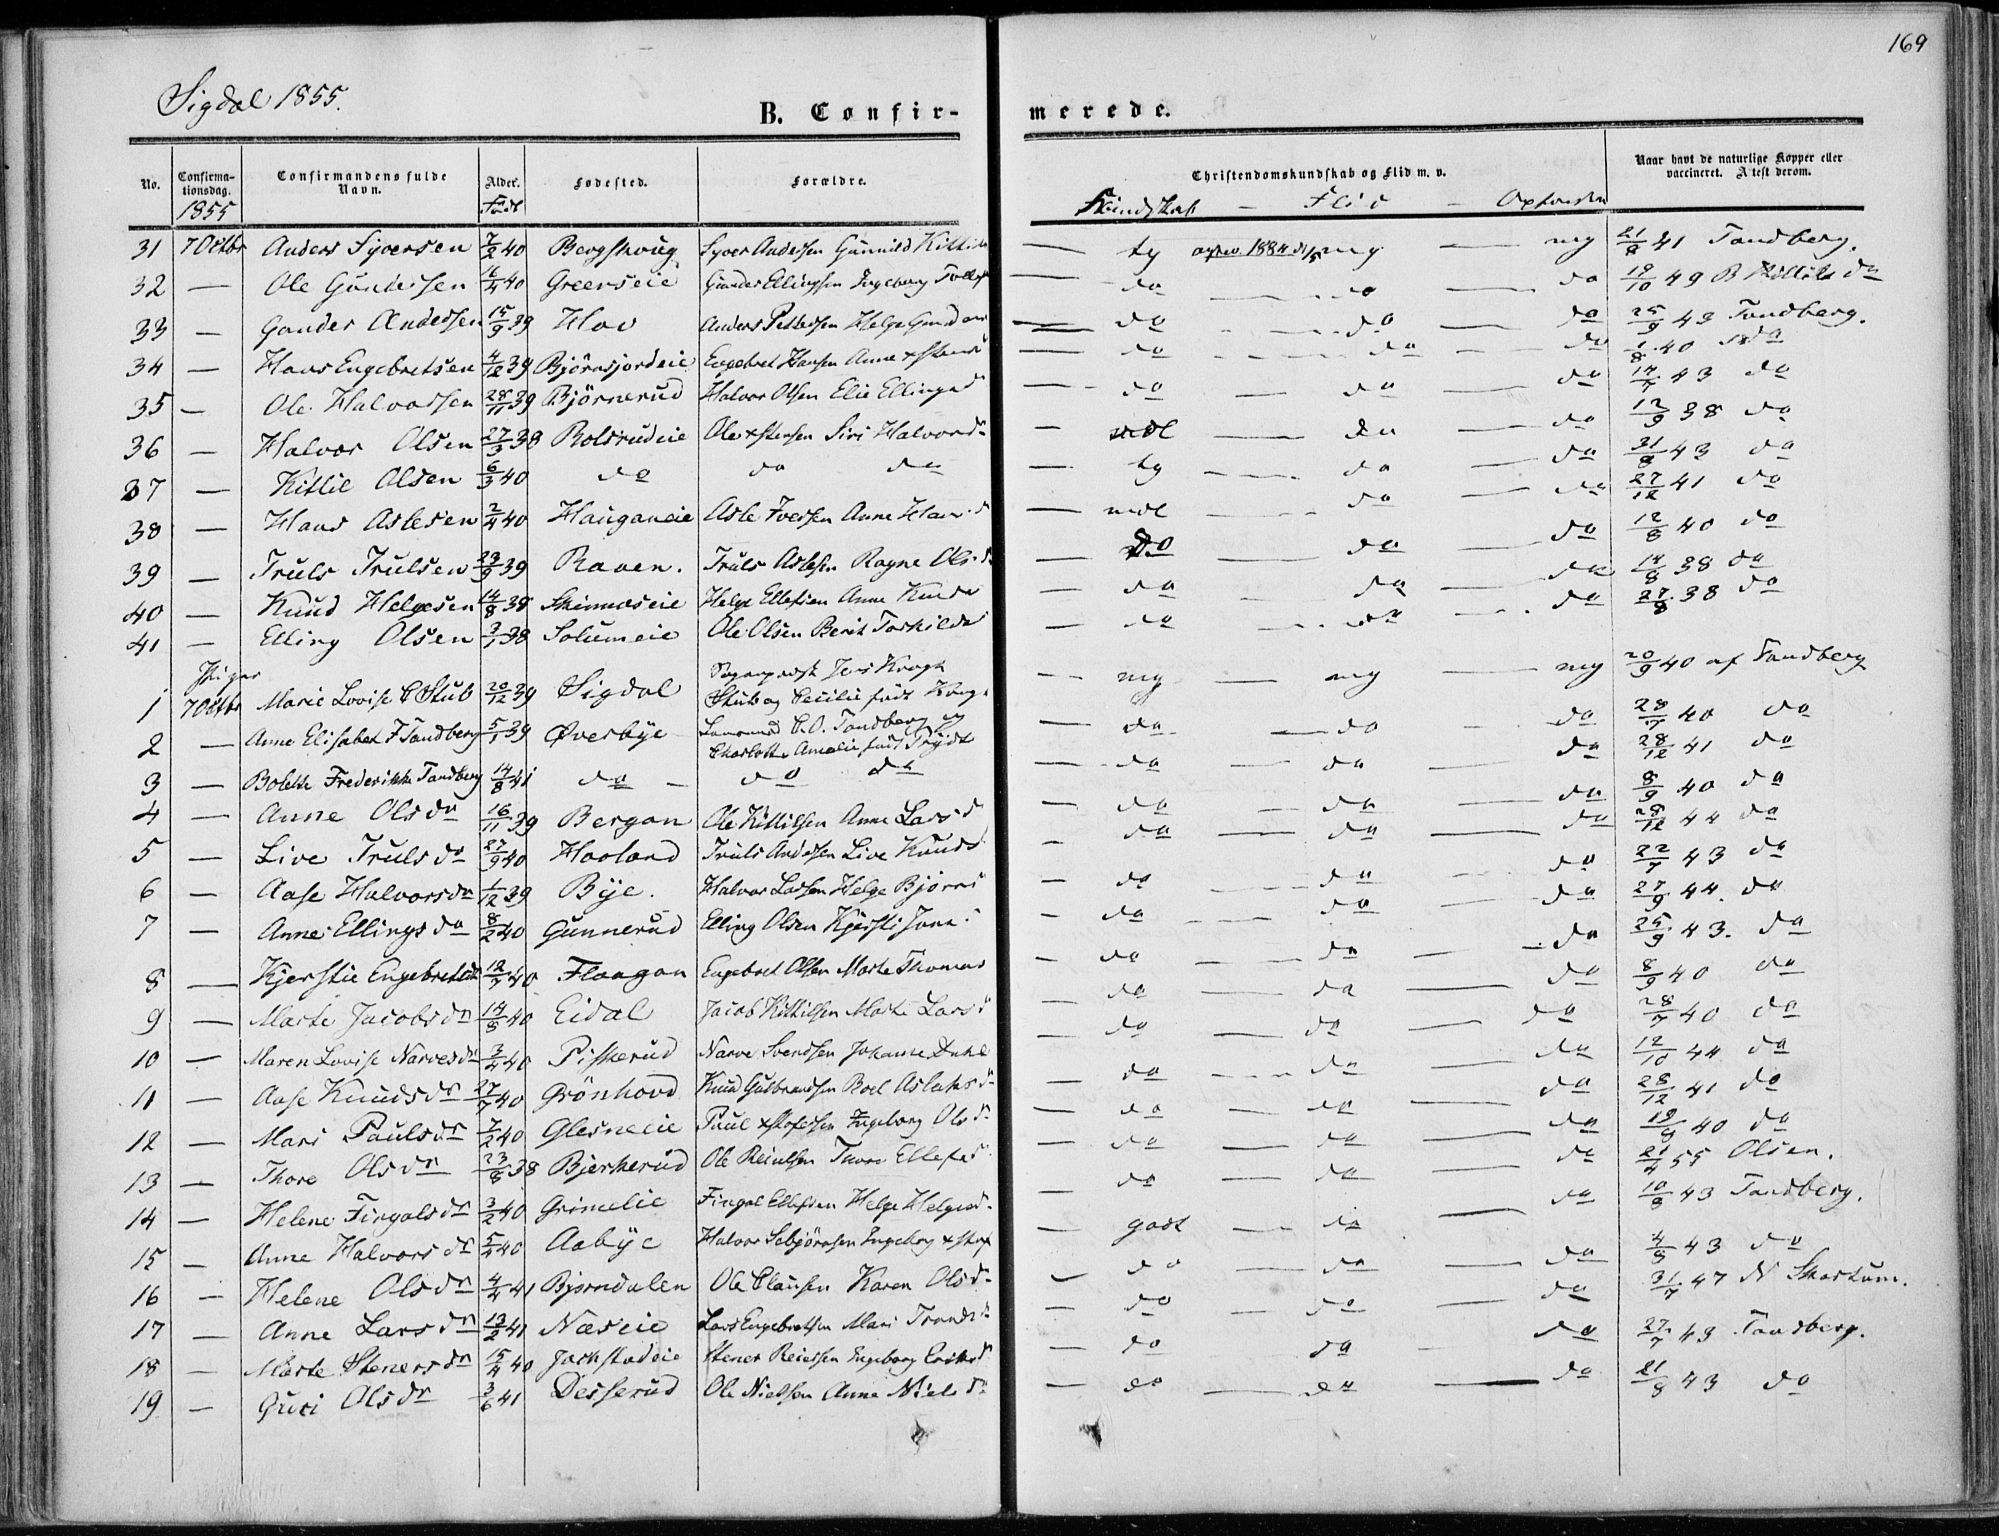 169
Sigdal 1855.
B. Confir-
merede.
No. Confirma-tionsdag. 1855 Confirmandens fulde Navn. Alder. Født Fødested. Forældre. Christendomskundskab og Flid m. v. Naar havt de naturlige Kopper eller vaccineret. Attest derom.
Kundskab — Flid — Opførsel
31 7 Octbr Anders Syversen 7/2 40 Bergskoug Syver Andersen Gunnild — tg mg — mg 21/8 41 Tandberg.
32 — Ole Gundersen 16/4 40 Greerseie Gunder Ellingsen Ingeborg — do do do 19/10 49
33 — Gunder Andersen 15/9 39 Hov Anders Pettersen Helge — do do do 25/9 43 Tandberg.
34 — Hans Engebretsen 4/12 39 Bjørnsjordeie Engebret Hansen Anne — do do do 1/8 40 do
35 — Ole Halvorsen 28/11 39 Bjørnerud Halvor Olsen Elie Ellingsd — do do do 14/7 43 do
36 — Halvor Olsen 27/3 38 Bolsrudeie Ole xstensen Siri Halvorsd — mdl do do 12/9 38 do
37 — Kittil Olsen 6/3 40 do do do — tg do do 31/8 43 do
38 — Hans Aslesen 2/4 40 Hauganeie Asle Iversen Anne — mdl do do 27/12 41 do
39 — Truls Trulsen 23/9 39 Raaen. Truls Aslesen Ragne Olsd — do do do 12/8 40 do
40 — Knud Helgesen 14/8 38 Skinneseie Helge Ellefsen Anne Knudsd — do do do 14/8 38 do
41 — Elling Olsen 3/1 38 Solumeie Ole Olsen Berit Torkilds — do do do 27/8 38 do
Piger
1 7 Octbr Marie Lovise C Stub 20/12 39 Sigdal Sogneprest Jens Kragh Stub og Cecilie født — mg mg — mg 20/9 40 af Tandberg
2 — Anne Elisabet F Tandberg 5/1 39 Øverbye C. O. Tandberg og Charlotte Amalie født — do do do 28/7 40 do
3 — Bolette Frederikke Tandberg 14/8 41 do do do — do do do 28/12 41 do
4 — Anne Olsdr 16/11 39 Bergan Ole Kittilsen Anne Larsd — do do do 8/9 40 do
5 — Live Trulsdr 27/9 40 Haaland Truls Andersen Live Knudsd — do do do 28/12 44 do
6 — Aase Halvorsdr 1/12 39 Bye. Halvor Larsen Helge Bjørns — do do do 22/7 43 do
7 — Anne Ellingsdr 8/2 40 Gunnerud Elling Olsen Kjersti — do do do 27/9 44. do
8 — Kjerstie Engebretsdr 12/4 40 Flaagan Engebret Olsen Marte Thomas — do do do 25/9 43. do
9 — Marte Jacobsdr 14/8 40 Eidal Jacob Kittilsen Marte Lars — do do do 8/9 40 do
10 — Maren Lovise Narvesdr 3/4 40 Piskerud Narve Svendsen Johanne — do do do 28/7 40 do
11 — Aase Knudsdr 27/7 40 Grønhovd Knud Gulbrandsen Boel Aslaksd — do do do 12/10 44 do
12 — Mari Paulsdr 7/2 40 Glesneeie Paul xstofersen Ingeborg Olsd — do do do 28/12 41 do
13 — Thore Olsdr 23/8 38 Bjerkerud Ole Reiersen Thore Ellefsd — do do do 19/9 40 do
14 — Helene Fingalsdr 3/2 40 Grimelie Fingal Ellefsen Helge Helgesd — do do do 21/4 55 Olsen.
15 — Anne Halvorsdr 5/4 40 Aabye Halvor Sebjørnsen Ingeborg — godt do do 10/8 43 Tandberg.
16 — Helene Olsdr 4/4 41 Bjørndalen Ole Clausen Karen Olsd — do do do 4/8 43 do
17 — Anne Larsdr 13/2 41 Næseie Lars Engebretsen Mari — do do do 31/7 47 N Skartum.
18 — Marte Stenersdr 15/4 40 Jokstadeie Stener Reiersen Ingeborg Eriksd — do do do 27/7 43 Tandberg.
19 — Guri Olsdr 3/6 41 Desserud Ole Nielsen Anne Nielsd — do do do 21/8 43 do